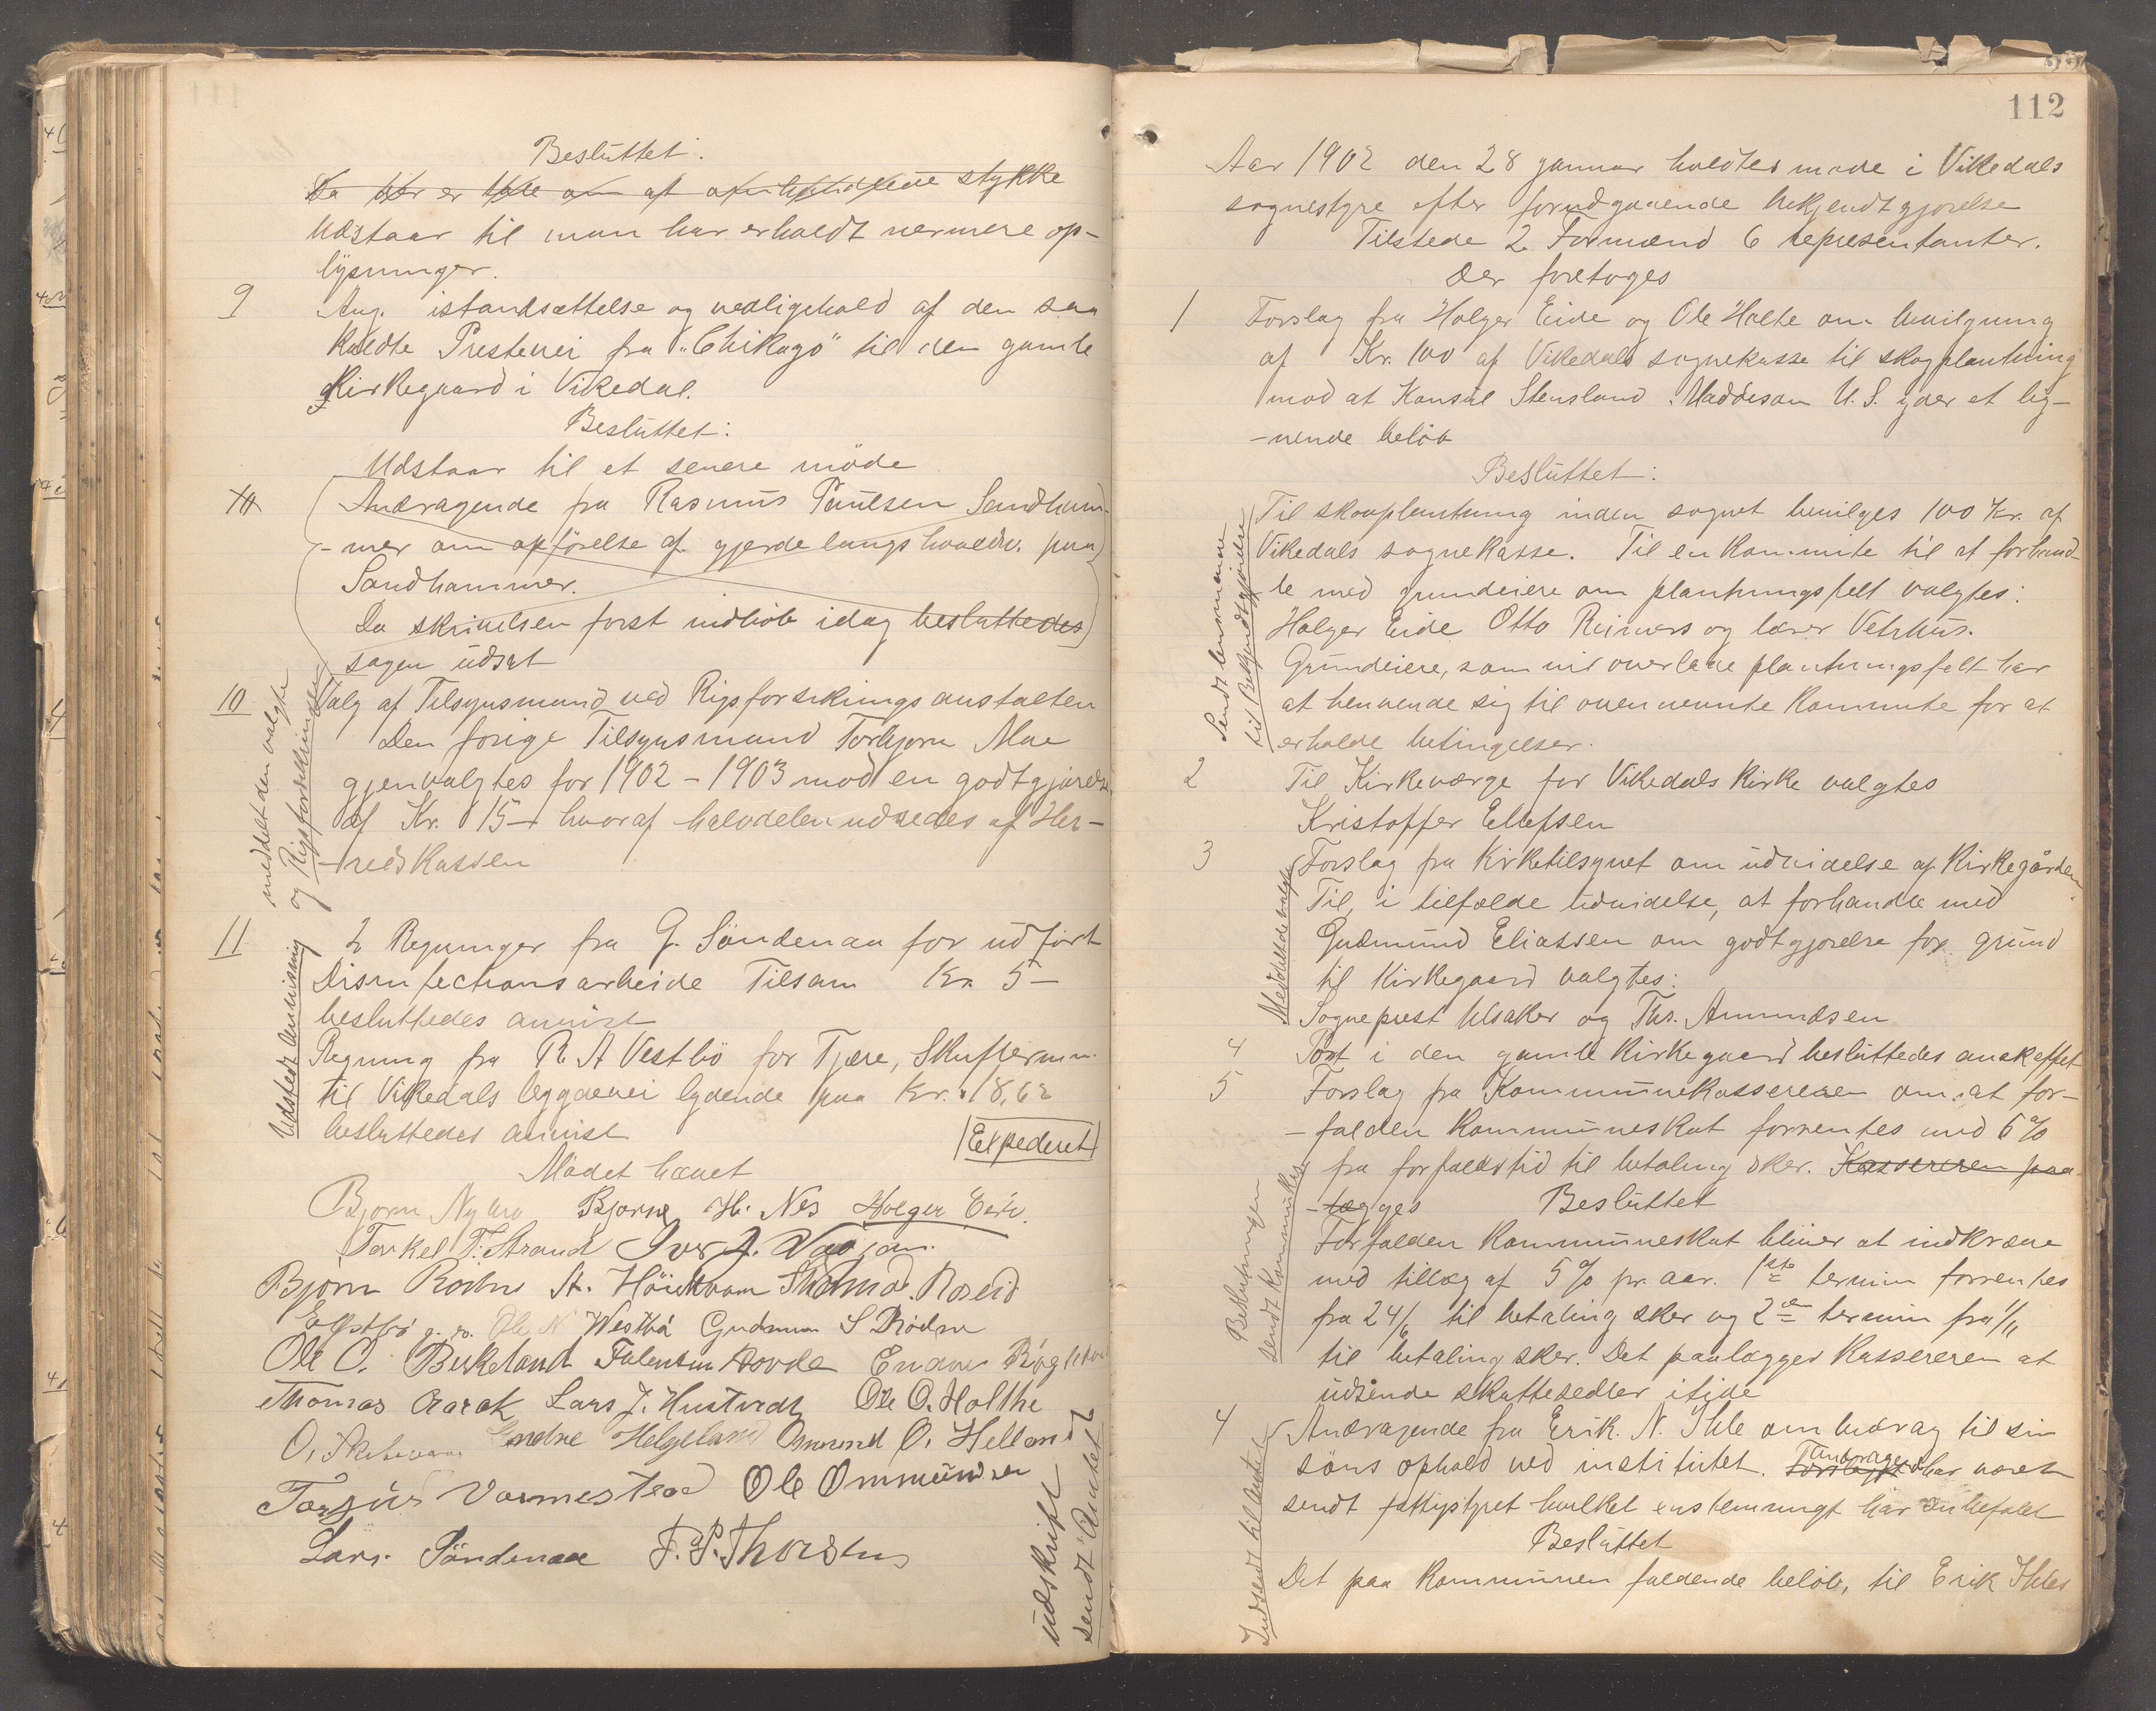 Besluttet:
stykke
Udstaar til man har erholdt nermere op-
lysninger.
9 Ang. istandsættelse og vedligehold af den saa
kaldte Prestevei fra "Chikago" til den gamle
Kirkegaard i Vikedal.
Besluttet:
Udstaar til et senere möde
10 Andragende fra Rasmus Paulsen Sandham-
-mer om opförelse af gjerde langs hovedv. paa
Sandhammer.
Da skrivelsen forst indlöb idag besluttedes
sagen udsat
10 Valg af Tilsynsmand ved Rigsforsikringsanstalten
Den forige Tilsynsmand Torbjorn Moe
gjenvalgtes for 1902 - 1903 mod en godtgjörelse
af Kr. 15 - hvoraf halvdelen udredes af Her-
-redskassen
meddelt den valgte
og Rigsforsikringen
11 2 Regninger fra G. Söndenaa for udfört
Disinfectionsarbeide Tilsam Kr. 5 -
besluttedes anvist
Regning fra R. A Vestbö for Tjære, Skufler m.m.
til Vikedals bygdevei lydende paa Kr. 18,62
besluttedes anvist
Udstedt Anvisning
Expederet
Mödet hævet
Bjorn Nybru Bjorne H. Nes Holger Eide.
Torkel T. Strand Iver J.
Bjørn St. Roseid
Westbö Gudmun S
Ole O. Birkeland Hovda
Thomas Aarak Lars J. Hustvedt Ole O. Holthe
O. Endre Helgeland Osmund O. Helland
Vormestrand Ole Ommundsen
Lars Söndenaa T. P. Thorsen
udskrift
sendt Amtet
112
Aar 1902 den 28 januar holdtes möde i Vikedals
sognestyre efter forudgaaende bekjendtgjorelse
Tilstede 2 Formænd 6 representanter.
Der foretoges
1 Forslag fra Holger Eide og Ole Holte om bevilgning
af Kr. 100 af Vikedals sognekasse til skogplantning
mod at Konsul Stensland. Maddison U.S. yder et lig-
-nende belöb
Besluttet:
Til skovplantning inden sognet bevilges 100 Kr. af
Vikedals sognekasse. Til en kommite til at forhand-
le med grundeiere om plantningsfelt valgtes:
Holger Eide Otto Reimers og lærer Vetrhus.
Grundeiere, som vil overlade plantningsfelt har
at henvende sig til ovennevnte kommite for at
erholde betingelser.
Sendt lensmanden
til Bekjendtgjörelse
2 Til Kirkeværge for Vikedals Kirke valgtes
Kristoffer Ellefsen
3 Forslag fra Kirketilsynet om udvidelse af Kirkegården
Til, i tilfælde udvidelse, at forhandle med
Gudmund Eliassen om godtgjorelse for grund
til Kirkegaard valgtes:
Sogneprest Ulsaker og Ths. Amundsen
Meddelt de valgte
4 Port i den gamle Kirkegaard besluttedes anskaffet
5 Forslag fra Kommunekassereren om at for-
-falden kommuneskat forrentes med 6%
fra forfaldstid til betaling sker. Kassereren paa
-lægges Besluttet
Forfalden kommuneskat bliver at indkræve
med tillæg af 5% pr. aar. 1ste termin forrentes
fra 24/6 til betaling sker og 2den termin fra 1/11
til betaling sker. Det paalægges Kassereren at
udsende skattesedler itide
Beslutningen
sendt Kommunekas.
4 Andragende fra Erik. N. Ihle om bidrag til sin
söns ophold ved institutet. Forslaget Andragend har været
sendt fattigstyret hvilket enstemmigt har anbefalet
Besluttet
Det paa kommunen faldende belöb, til Erik Ihles
Indsendt til Amtet